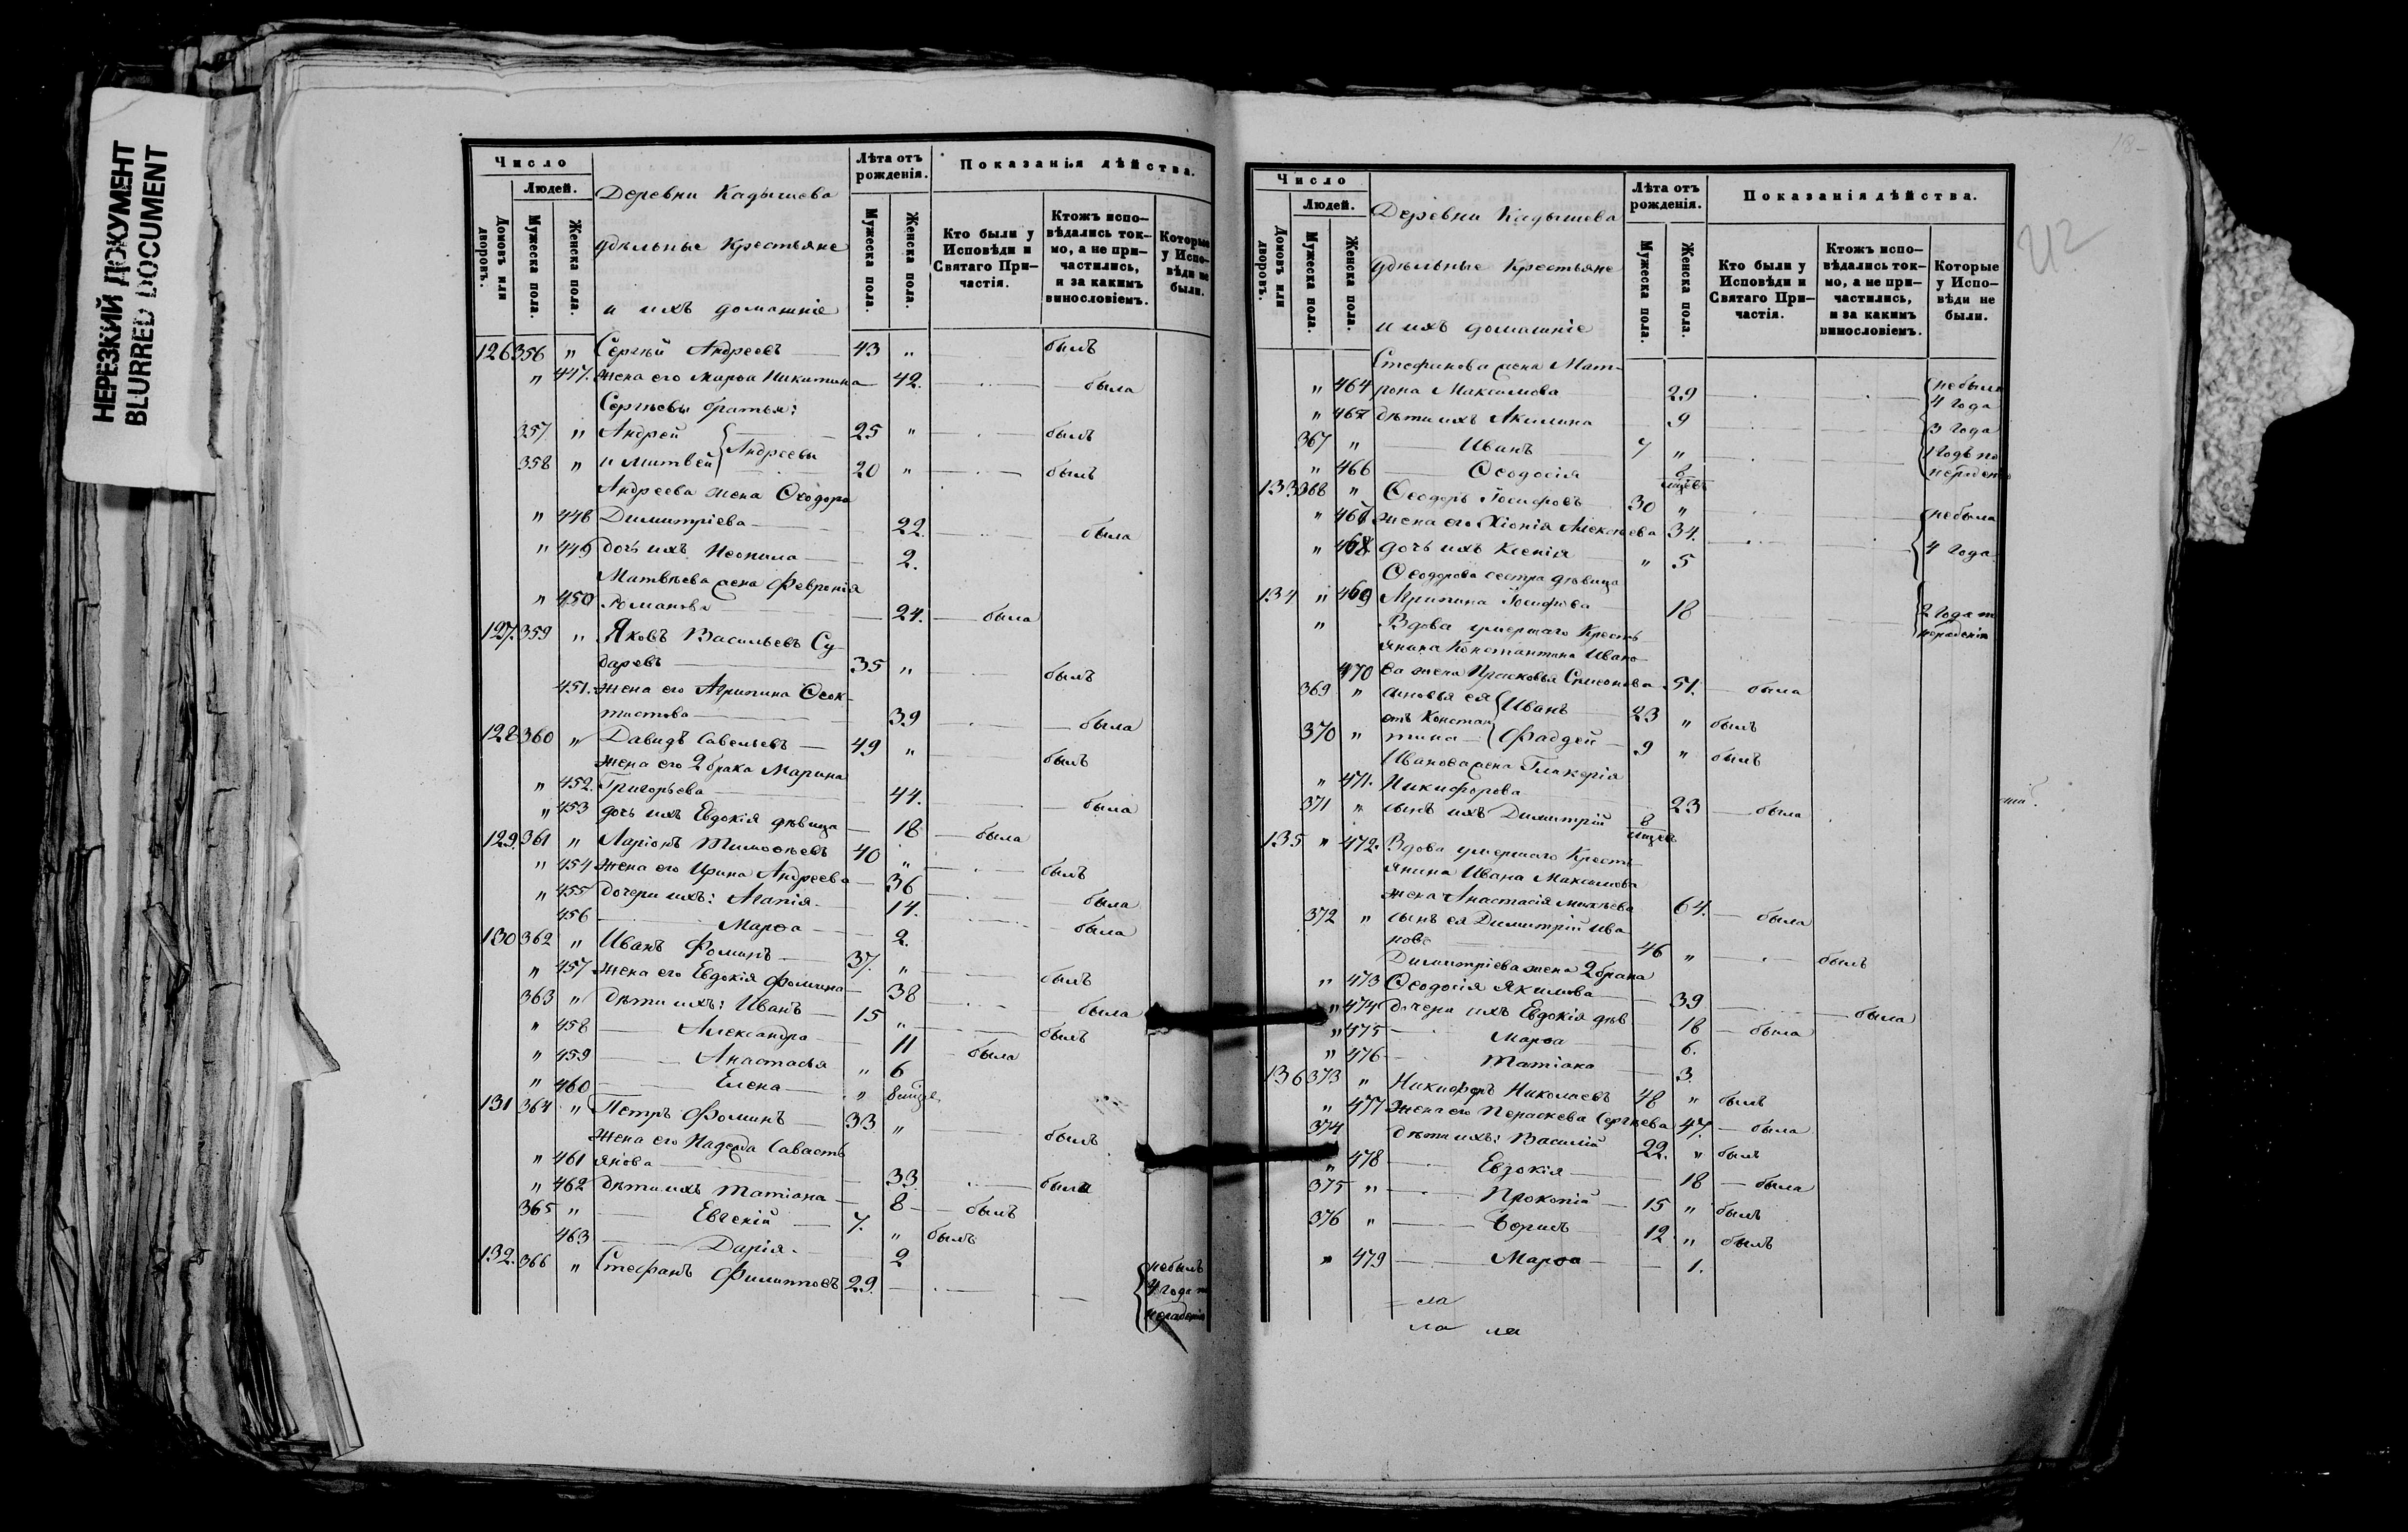 НЕРЕЗКИЙ ДОКУМЕНТ
BLURRED DOCUMENT
Число
Людей.
Домовъ или дворовъ.
Мужеска пола.
Женска пола.
Деревни Кадышева
удѣльные Крестьяне
и ихъ домашніе
Лѣта отъ рожденія.
Мужеска пола.
Женска пола.
Показанія дѣйства.
Кто были у Исповѣди и Святаго Причастія.
Ктожъ исповѣдались токмо, а не причастились, и за какимъ винословіемъ.
Которые у Исповѣди не были.
126 356 " Сергѣй Андреевъ 43 " былъ
" 447. жена его Марѳа Никитина 42. была
Сергѣевы братья:
357 " Андрей 25 " былъ
Андреевы
358 " и Матвѣй 20 " былъ
Андреева жена Ѳеодора
" 448 Димитріева 22. была
" 449 дочь ихъ Неонила 2.
Матвѣева жена Февронія
" 450 Романова 24. была
127. 359 " Яковъ Васильевъ Су-
даревъ 35 " былъ
451. жена его Агрипина Ѳеок-
тистова 39 была
128 360 " Давидъ Савельевъ 49 " былъ
жена его 2 брака Марина
" 452. Григорьева 44. была
" 453 дочь ихъ Евдокія дѣвица 18 была
129. 361 " Ларіонъ Тимоѳеевъ 40 " былъ
" 454 жена его Ирина Андреева 36 была
" 455 дочери ихъ: Агапія 14. была
456 Марѳа 2.
130 362 " Иванъ Фоминъ 37. " былъ
" 457 жена его Евдокія Фомина 38 была
363 " дѣти ихъ: Иванъ 15 " былъ
" 458 Александра 11 была
" 459 Анастасья " 6
" 460 Елена " 8 мѣсяц.
131 364 " Петръ Фоминъ 33 " былъ
жена его Надежда Савасть
" 461 янова 33 была
" 462 дѣти ихъ Татіана 8 былъ
365 " Евгеній 7. " былъ
463 Дарія 2
132. 366 " Стефанъ Филипповъ 29. небылъ
4 года по
нерадѣнію
Число
Людей.
Домовъ или дворовъ.
Мужеска пола.
Женска пола.
Деревни Кадышева
удѣльные Крестьяне
и ихъ домашніе
Лѣта отъ рожденія.
Мужеска пола.
Женска пола.
Показанія дѣйства.
Кто были у Исповѣди и Святаго Причастія.
Ктожъ исповѣдались токмо, а не причастились, и за какимъ винословіемъ.
Которые у Исповѣди не были.
212
Стефанова жена Мат-
" 464 рона Максимова 29 небыла
4 года
" 465 дѣти ихъ Акилина 9 3 года
367 " Иванъ 7 " 1 годъ по
" 466 Ѳеодосія 8 мѣсяцевъ нерадѣнію
133 368 " Ѳеодоръ Іосифовъ 30 "
" 467 жена его Хіонія Алексѣева 34. небыла
" 468 дочь ихъ Ксенія " 5 4 года
Ѳеодорова сестра дѣвица
134 " 469 Агрипина Іосифова 18 2 года по
нерадѣнію
" Вдова умершаго Кресть-
янина Константина Ивано-
470 ва жена Прасковья Симонова 51. была
369 " сыновья ея Иванъ 23 " былъ
отъ Констан-
370 " тина Фаддей 9 " былъ
Иванова жена Гликерія
" 471. Никифорова 23 была
371 " сынъ ихъ Димитрій 8 мѣсяцевъ
135 " 472. Вдова умершаго Кресть-
янина Ивана Максимова
жена Анастасія Михѣева 64. была
372 " сынъ ея Димитрій Ива
новъ 46 " былъ
Димитріева жена 2 брака
" 473 Ѳеодосія Якимова 39 была
" 474 дочери ихъ Евдокія дѣв 18 была
" 475 Марѳа 6.
" 476 Татіана 3.
136 373 " Никифоръ Николаевъ 48 " былъ
" 477 жена его Параскева Сергѣева 47. была
374 дѣти ихъ: Василій 22. " былъ
" 478 Евдокія 18 была
375 " Прокопій 15 " былъ
376 " Борисъ 12 " былъ
" 479 Марѳа 1.
ла
ла ла